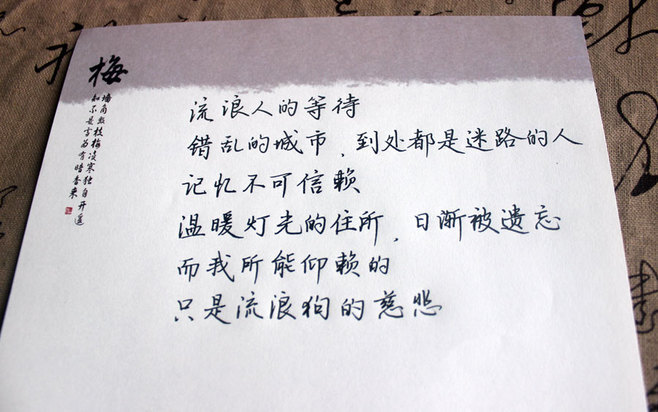 梅
墙角数枝梅凌寒独自开遥
知不是雪为有暗香来
流浪人的等待
错乱的城市,到处都是迷路的人
记忆不可信赖
温暖灯光的住所,日渐被遗忘
而我所能仰赖的
只是流浪狗的慈悲